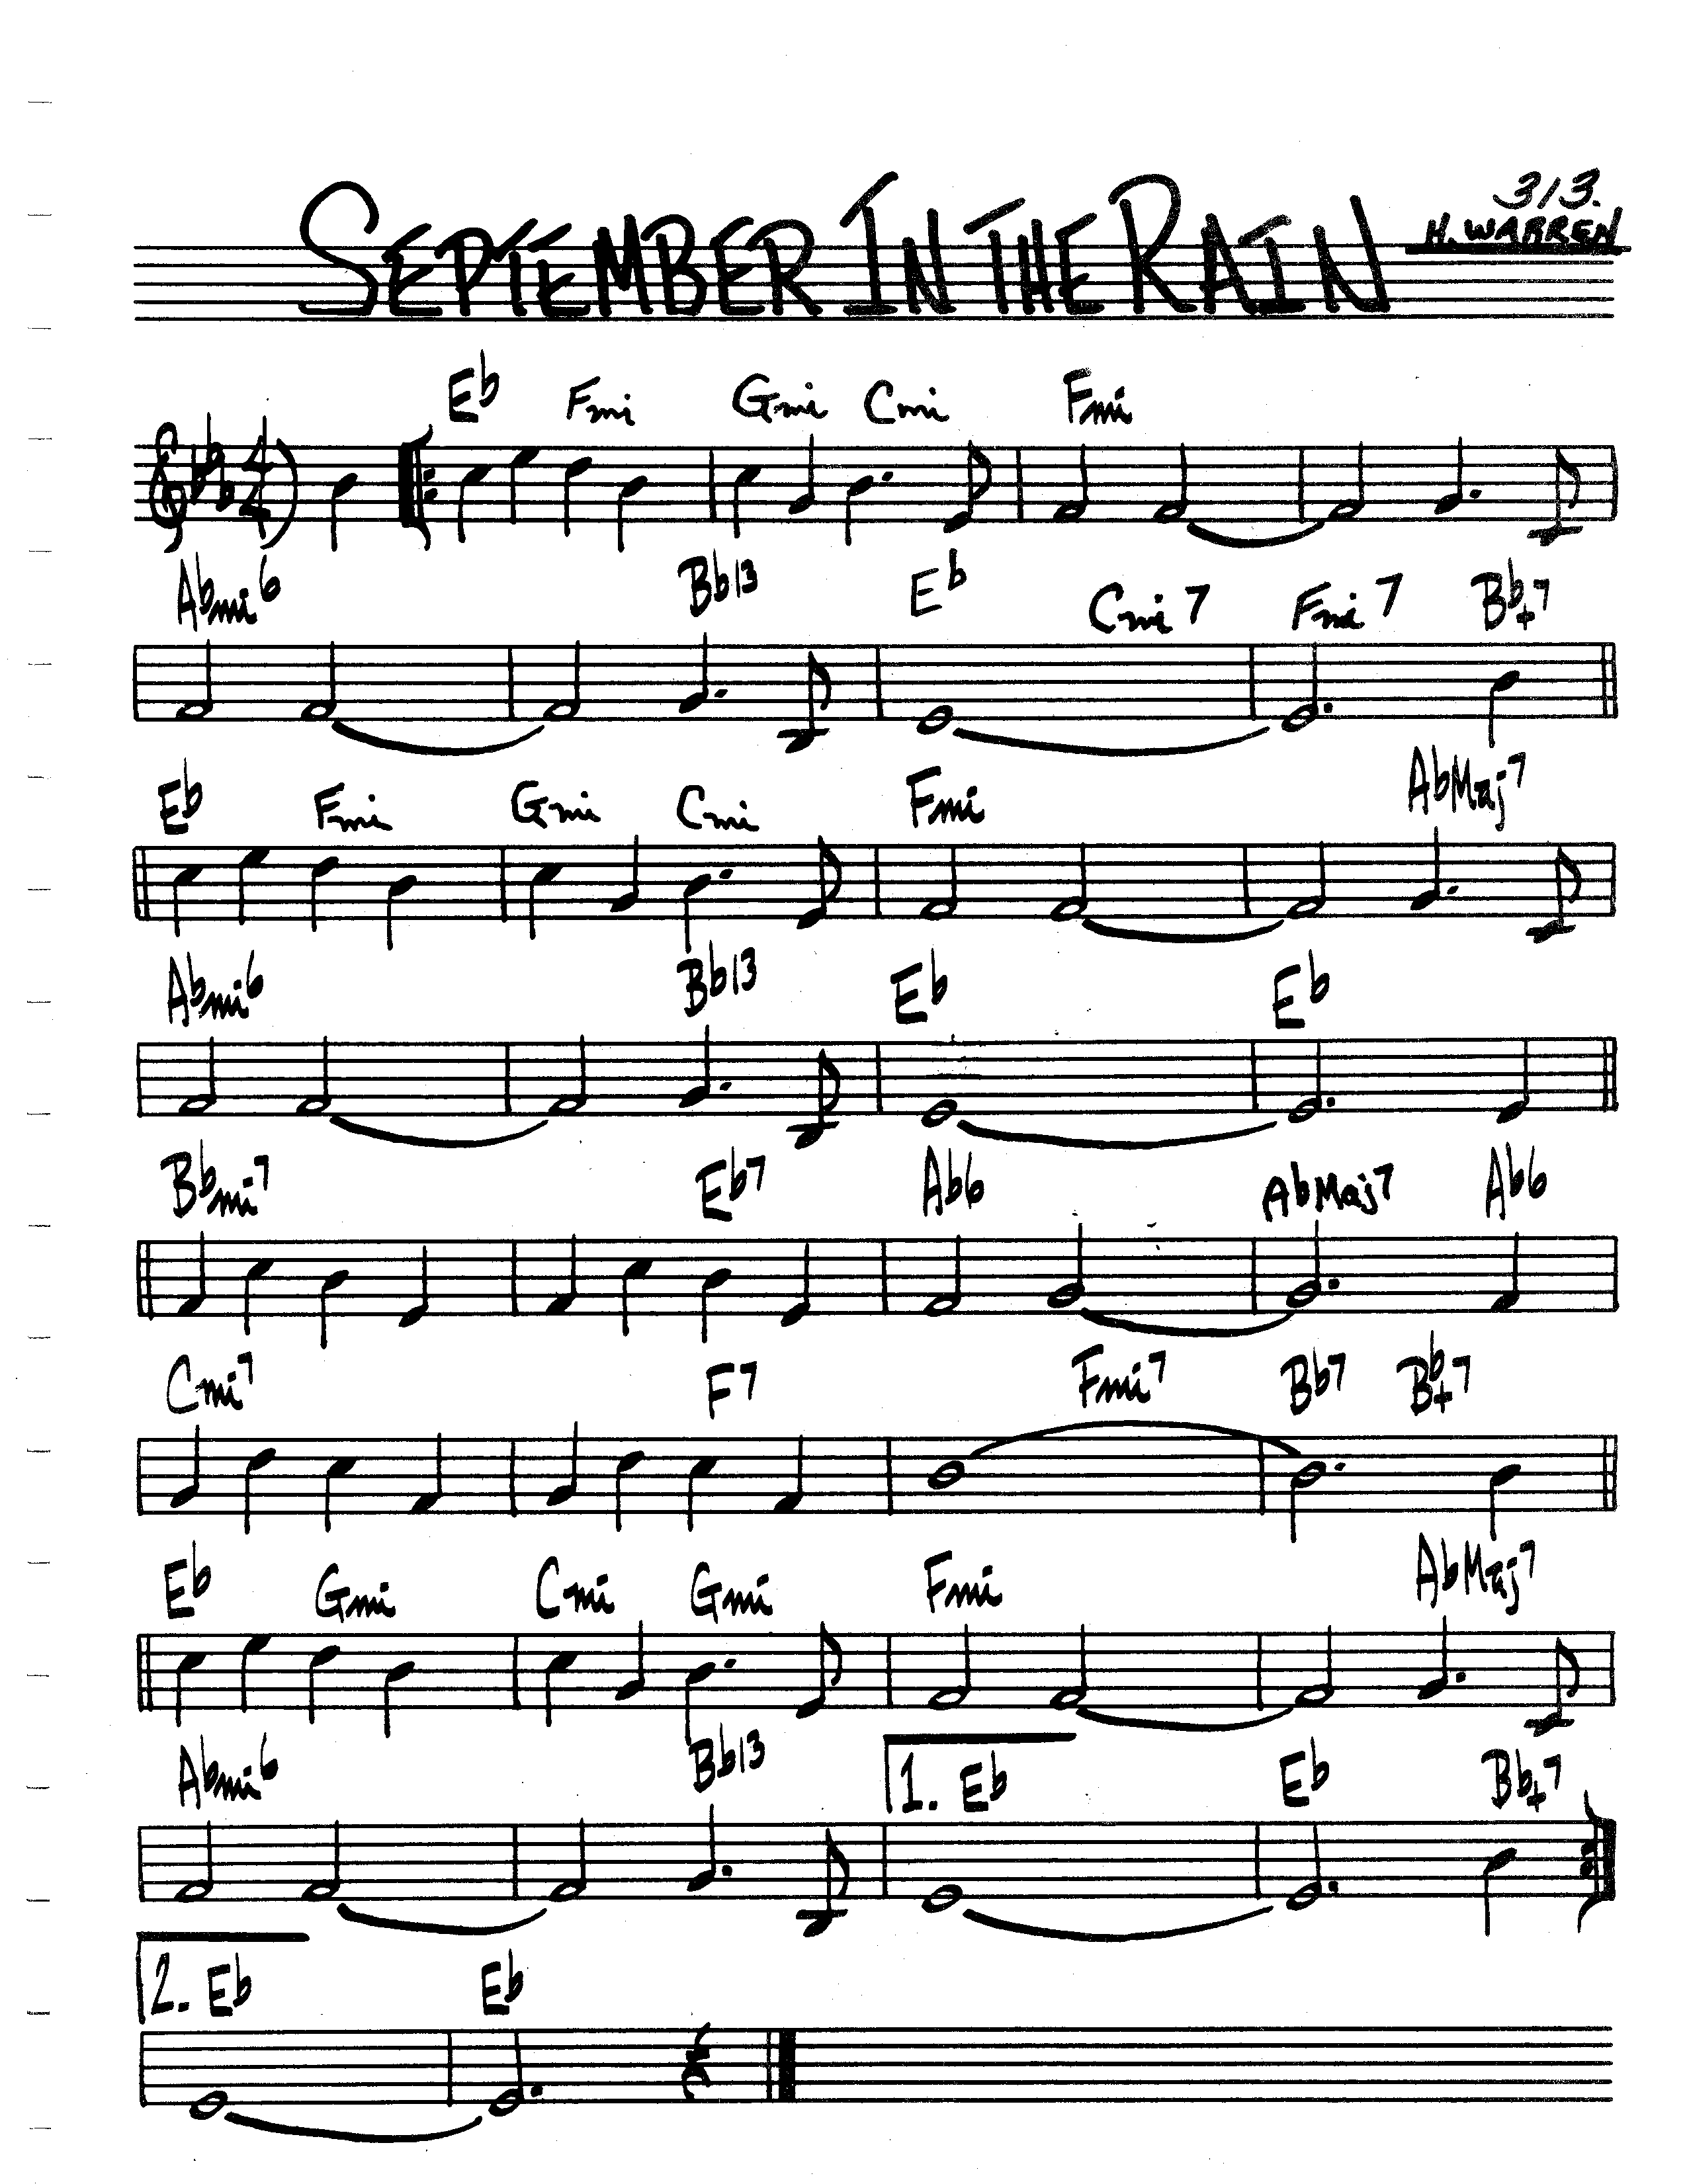 313.
SEPTEMBER IN THE RAIN
H. WARREN
Eb Fmi Gmi Cmi Fmi
4/4
Abmi6 Bb13 Eb Cmi7 Fmi7 Bb+7
Eb Fmi Gmi Cmi Fmi AbMaj7
Abmi6 Bb13 Eb Eb
Bbmi7 Eb7 Ab6 AbMaj7 Ab6
Cmi7 F7 Fmi7 Bb7 Bb+7
Eb Gmi Cmi Gmi Fmi AbMaj7
Abmi6 Bb13 1. Eb Eb Bb+7
2. Eb Eb